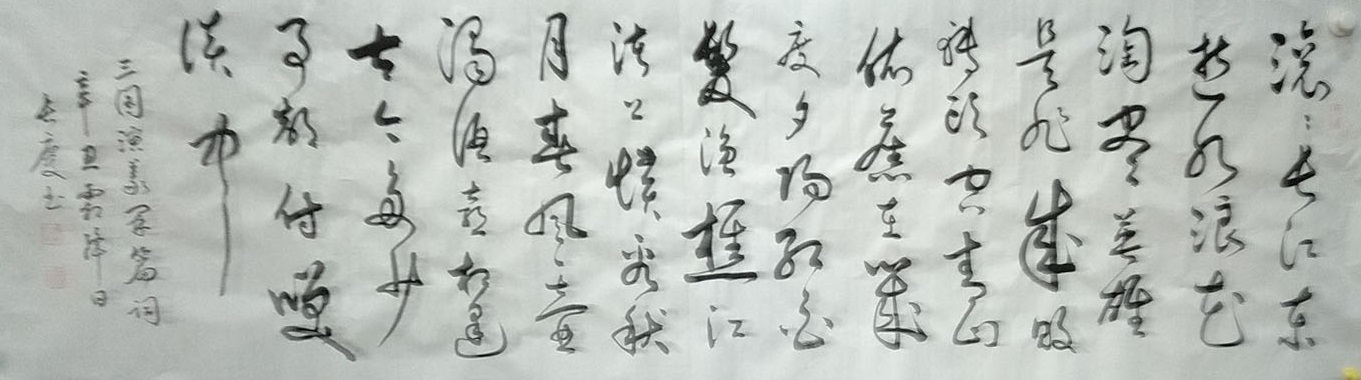 滚滚长江东
逝水浪花
淘尽英雄
是非成败
转头空青山
依旧在幾
度夕阳红白
髮渔樵江
渚上惯看秋
月春风一壶
浊酒喜相逢
古今多少
事都付笑
谈中
三国演义开篇词
辛丑霜降日
长庆书